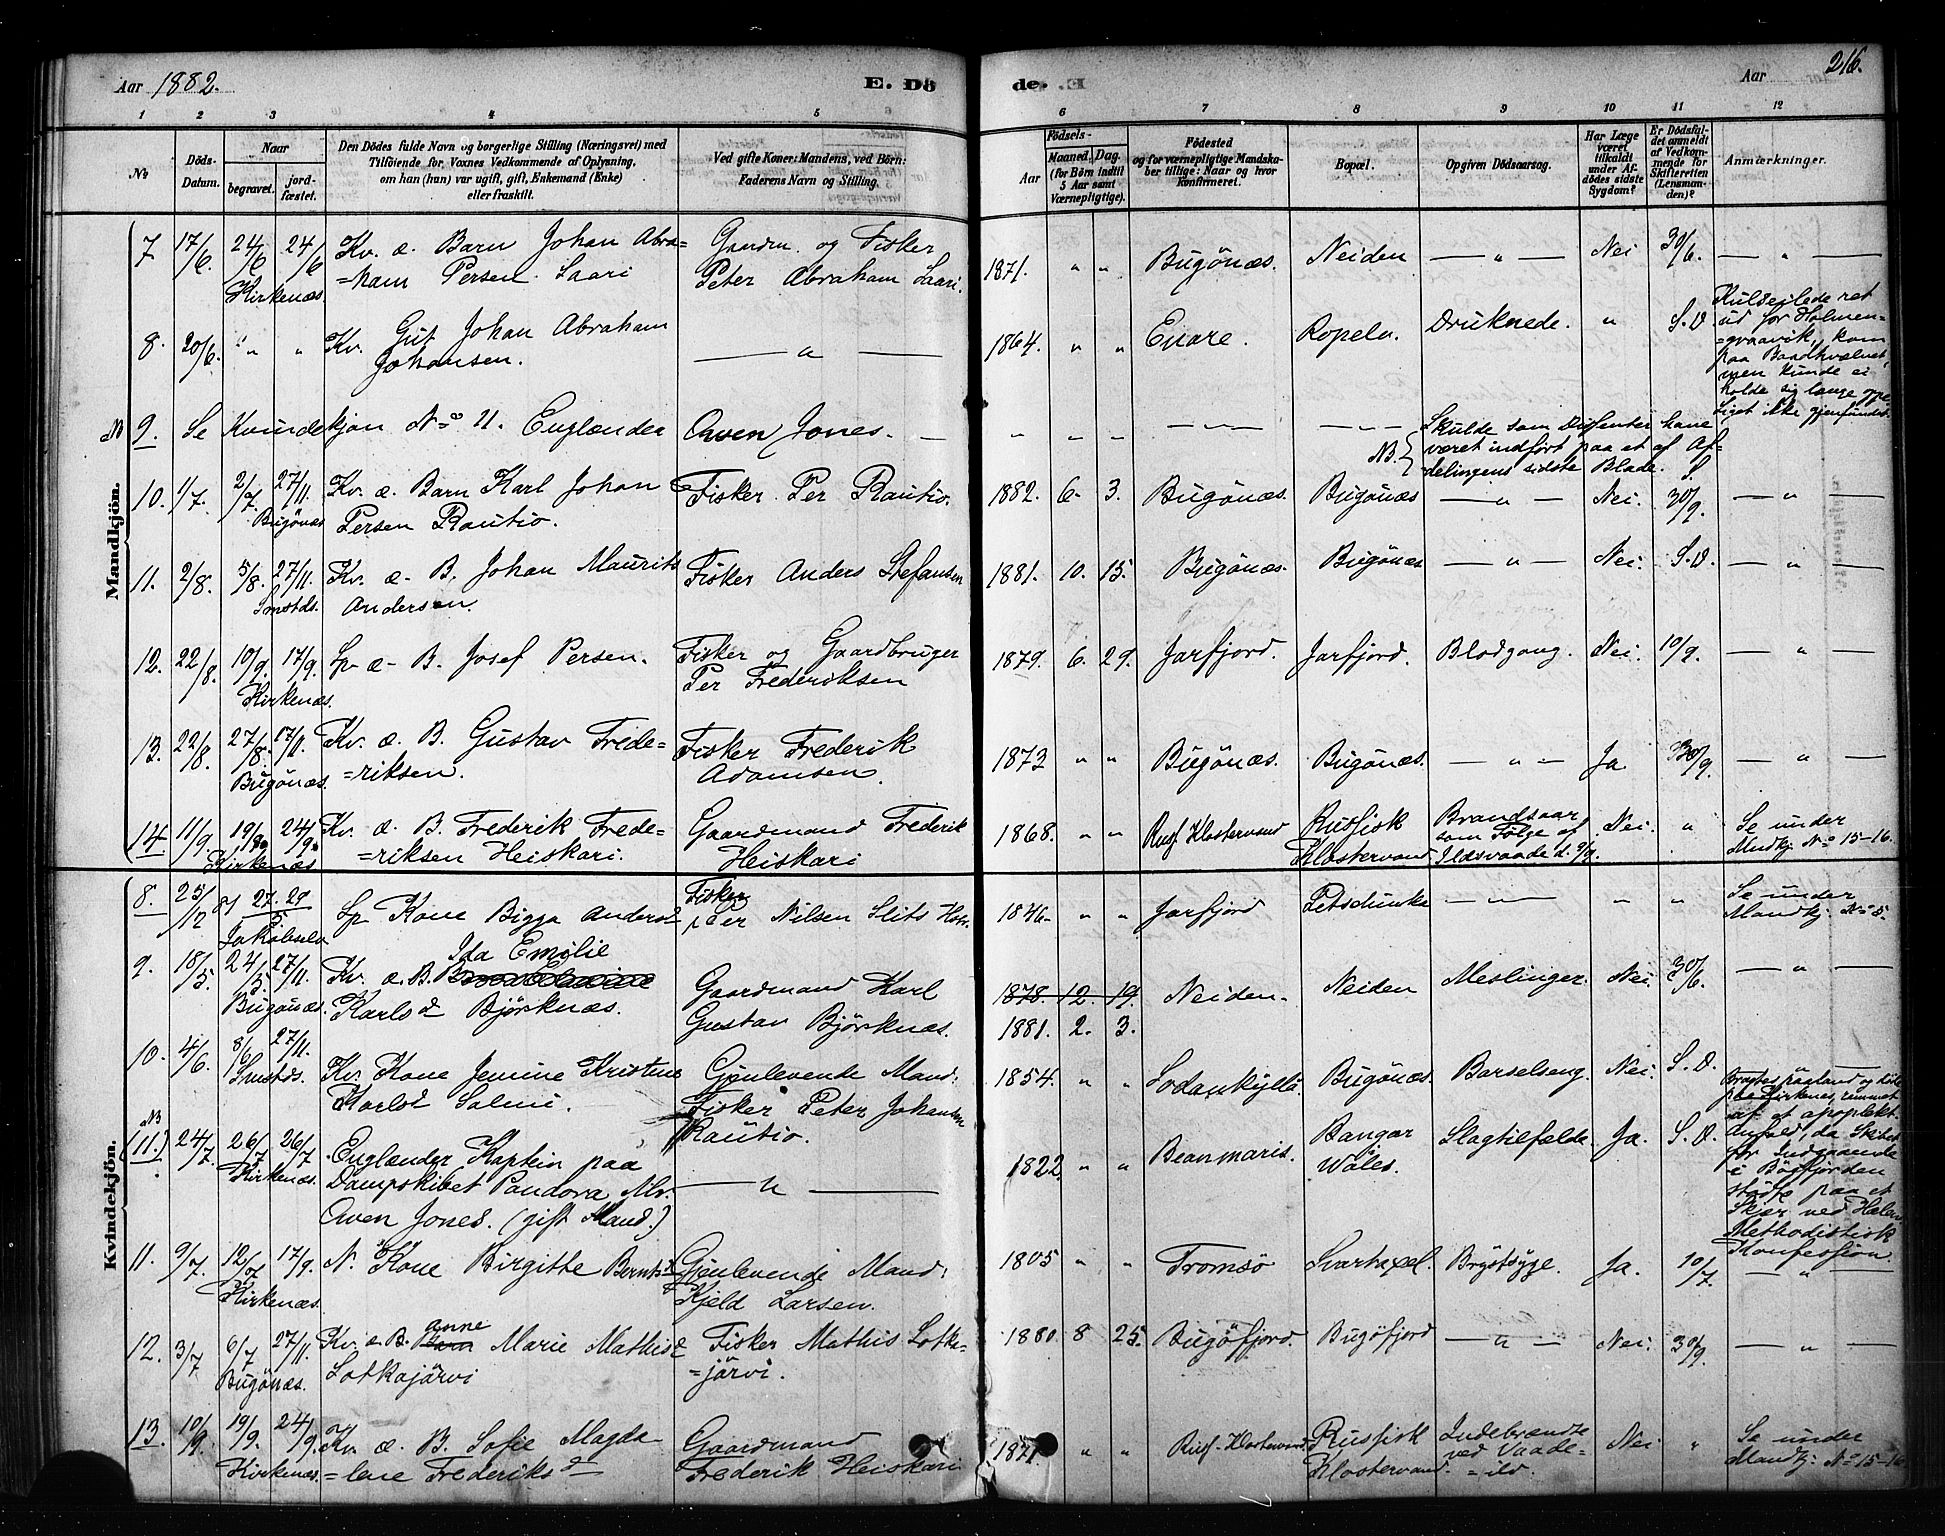 Aar 1882.
E. Dö
de. E
Aar 216.
1 2 3 4 5 6 7 8 9 10 11 12
No
Döds-
Datum.
Naar
begravet.
jord-
fæstet.
Den Dödes fulde Navn og borgerlige Stilling (Næringsvei) med
Tilföiende for Voxnes Vedkommende af Oplysning,
om han (hun) var ugift, gift, Enkemand (Enke)
eller fraskilt.
Ved gifte Koner: Mandens, ved Börn:
Faderens Navn og Stilling.
Födsels-
Aar
Maaned. Dag.
(for Börn indtil
5 Aar samt
Værnepligtige).
Födested
og for værnepligtige Mandska-
ber tillige: Naar og hvor
konfirmeret.
Bopæl.
Opgiven Dödsaarsag.
Har Læge
været
tilkaldt
under Af-
dödes sidste
Sygdom?
Er Dödsfal-
det anmeldt
af Vedkom-
mende for
Skifteretten
(Lensman-
den)?
Anmærkninger.
Mandkjön.
7 17/6. 24/6 24/6 Kv. æ. Barn Johan Abra= Gaardm. og Fisker 1871. " " Bugönæs. Neiden — " — Nei 30/6. — " —
Kirkenæs =ham Persen Saari Peter Abraham Saari.
8. 20/6. " " Kv. Gut Johan Abraham — " — 1864. " " Enare. Ropelv. Druknede. " S.D.
Johansen.
Kuldseilede ret
ud for Holmen=
=graavik, kom
paa Baadhvælvet,
men kunde ei
holde sig længe oppe.
Liget ikke gjenfundet.
NB 9. Se Kvindekjøn No 11. Englænder Owen Jones. — " " " — " — — " —
NB. Skulde som Dissenter have
været indført paa et af Af-
delingens sidste Blade. S.
10. 1/7. 2/7 27/11. Kv. æ. Barn Karl Johan Fisker Per Rautio. 1882. 6. 3. Bugönæs. Bugönæs — " — Nei. 30/9. — " —
Bugönæs Persen Rautio.
11. 2/8. 5/8. 27/11. Kv. æ. B. Johan Maurits Fisker Anders Stefansen 1881. 10. 15. Bugönæs. Bugönæs — " — Nei. S.D. — " —
Andersen.
12. 22/8. 10/9. 17/9. Lp. æ. B. Josef Persen. Fisker og Gaardbruger 1879. 6. 29. Jarfjord. Jarfjord. Blodgang. Nei. 10/9. — " —
Kirkenæs. Per Frederiksen
13. 22/8. 27/8. 17/11. Kv. æ. B. Gustav Frede= Fisker Frederik 1873 " " Bugönæs. Bugönæs. — " — Ja 30/9. — " —
Bugönæs. =riksen. Adamsen.
14 11/9. 19/9. 24/9. Kv. æ. B. Frederik Frede= Gaardmand Frederik 1868. " " Russ. Klostervand Russisk Brandsaar Nei. " Se under
Kirkenæs =riksen Heiskari. Heiskari Klostervand. som Følge af Mandkj. No 15-16.
Ildsvaade d. 9/9.
Kvindekjön.
8. 25/12 81 27. 29/5 Lp Kone Bigga Andersd Fisker 1846. " " Jarfjord Petschinke — " — " " Se under
Jakobselv Per Nilsen Slits Kone. Mandkj. No 5.
9. 18/5. 24/5 27/11. Kv. æ. B. Ida Emilie Gaardmand Karl 1878. 12. 19. Neiden. Neiden Meslinger. Nei. 30/6. — " —
Bugönæs. Karlsd Bjørknæs. Gustav Bjørknæs. 1881. 2. 3.
10. 4/6. 8/6 27/11. Kv. Kone Jemine Kristine Gjenlevende Mand: 1854. " " Sodankylä. Bugönæs. Barselseng. Nei. S.D.
Karlsd Salmi. Fisker Peter Johansen
Rautio.
NB (11.) 24/7. 26/7 26/7 Englænder Kaptein paa — " — 1822 " " Beanmaris. Bangor Slagtilfælde Ja. S.D.
Kirkenæs. Dampskibet Pandora Mr. Wales.
Owen Jones. (gift Mand.)
Bragtes island og døde
paa Kirkenæs, rammet
af et apoplekt.
Anfald, da Skibet
for Indgaaende
i Bøgfjorden
stødte paa et
Skjær ved
Methodistisk
Konfession.
11. 9/7. 12/7 17/9. N. Kone Birgitte Berntsd Gjenlevende Mand: 1805 " " Tromsö Svartaxel. Brystsyge. Ja. 10/7. — " —
Kirkenæs. Kjeld Larsen.
12. 3/7 6/7 27/11. Kv. æ. B. Anne Marie Mathisd Fisker Mathis Lotka= 1880 8 25. Bugöfjord. Bugöfjord — " — Nei. 30/9. — " —
Bugönæs. Lotkajärvi =järvi.
13. 10/9. 19/9. 24/9 Kv. æ. B. Sofie Magda Gaardmand 1871. " " Russ. Klostervand Russisk Indebrændte Nei " Se under
Kirkenæs. =lene Frederiksd Frederik Heiskari Klostervand. ved Vaade= Mandkj: No 15-16
=ild.